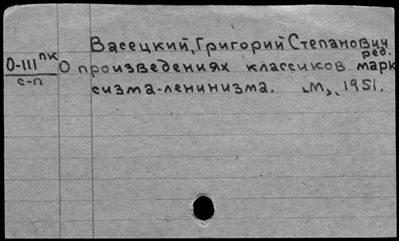 Васецкий, Григорий Степанович,
ред.
О-III пк О произведениях классиков марк
с-п
сизма-ленинизма. М., 1951.